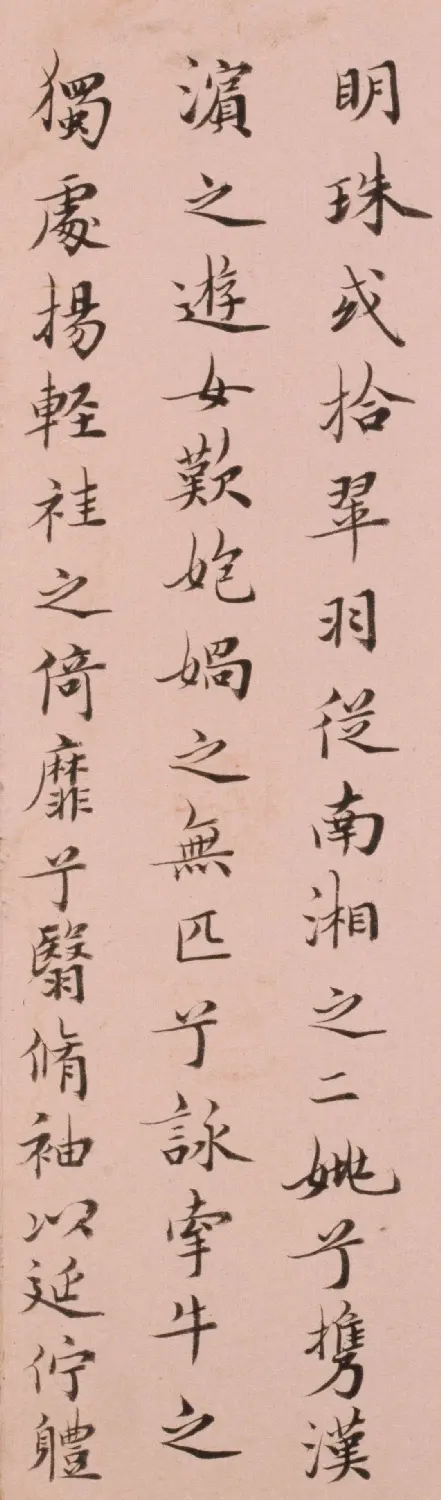 明珠或拾翠羽從南湘之二姚兮攜漢
濱之遊女歎媿媧之無匹兮詠牽牛之
獨處揚輕袿之倚靡兮翳脩袖以延佇體